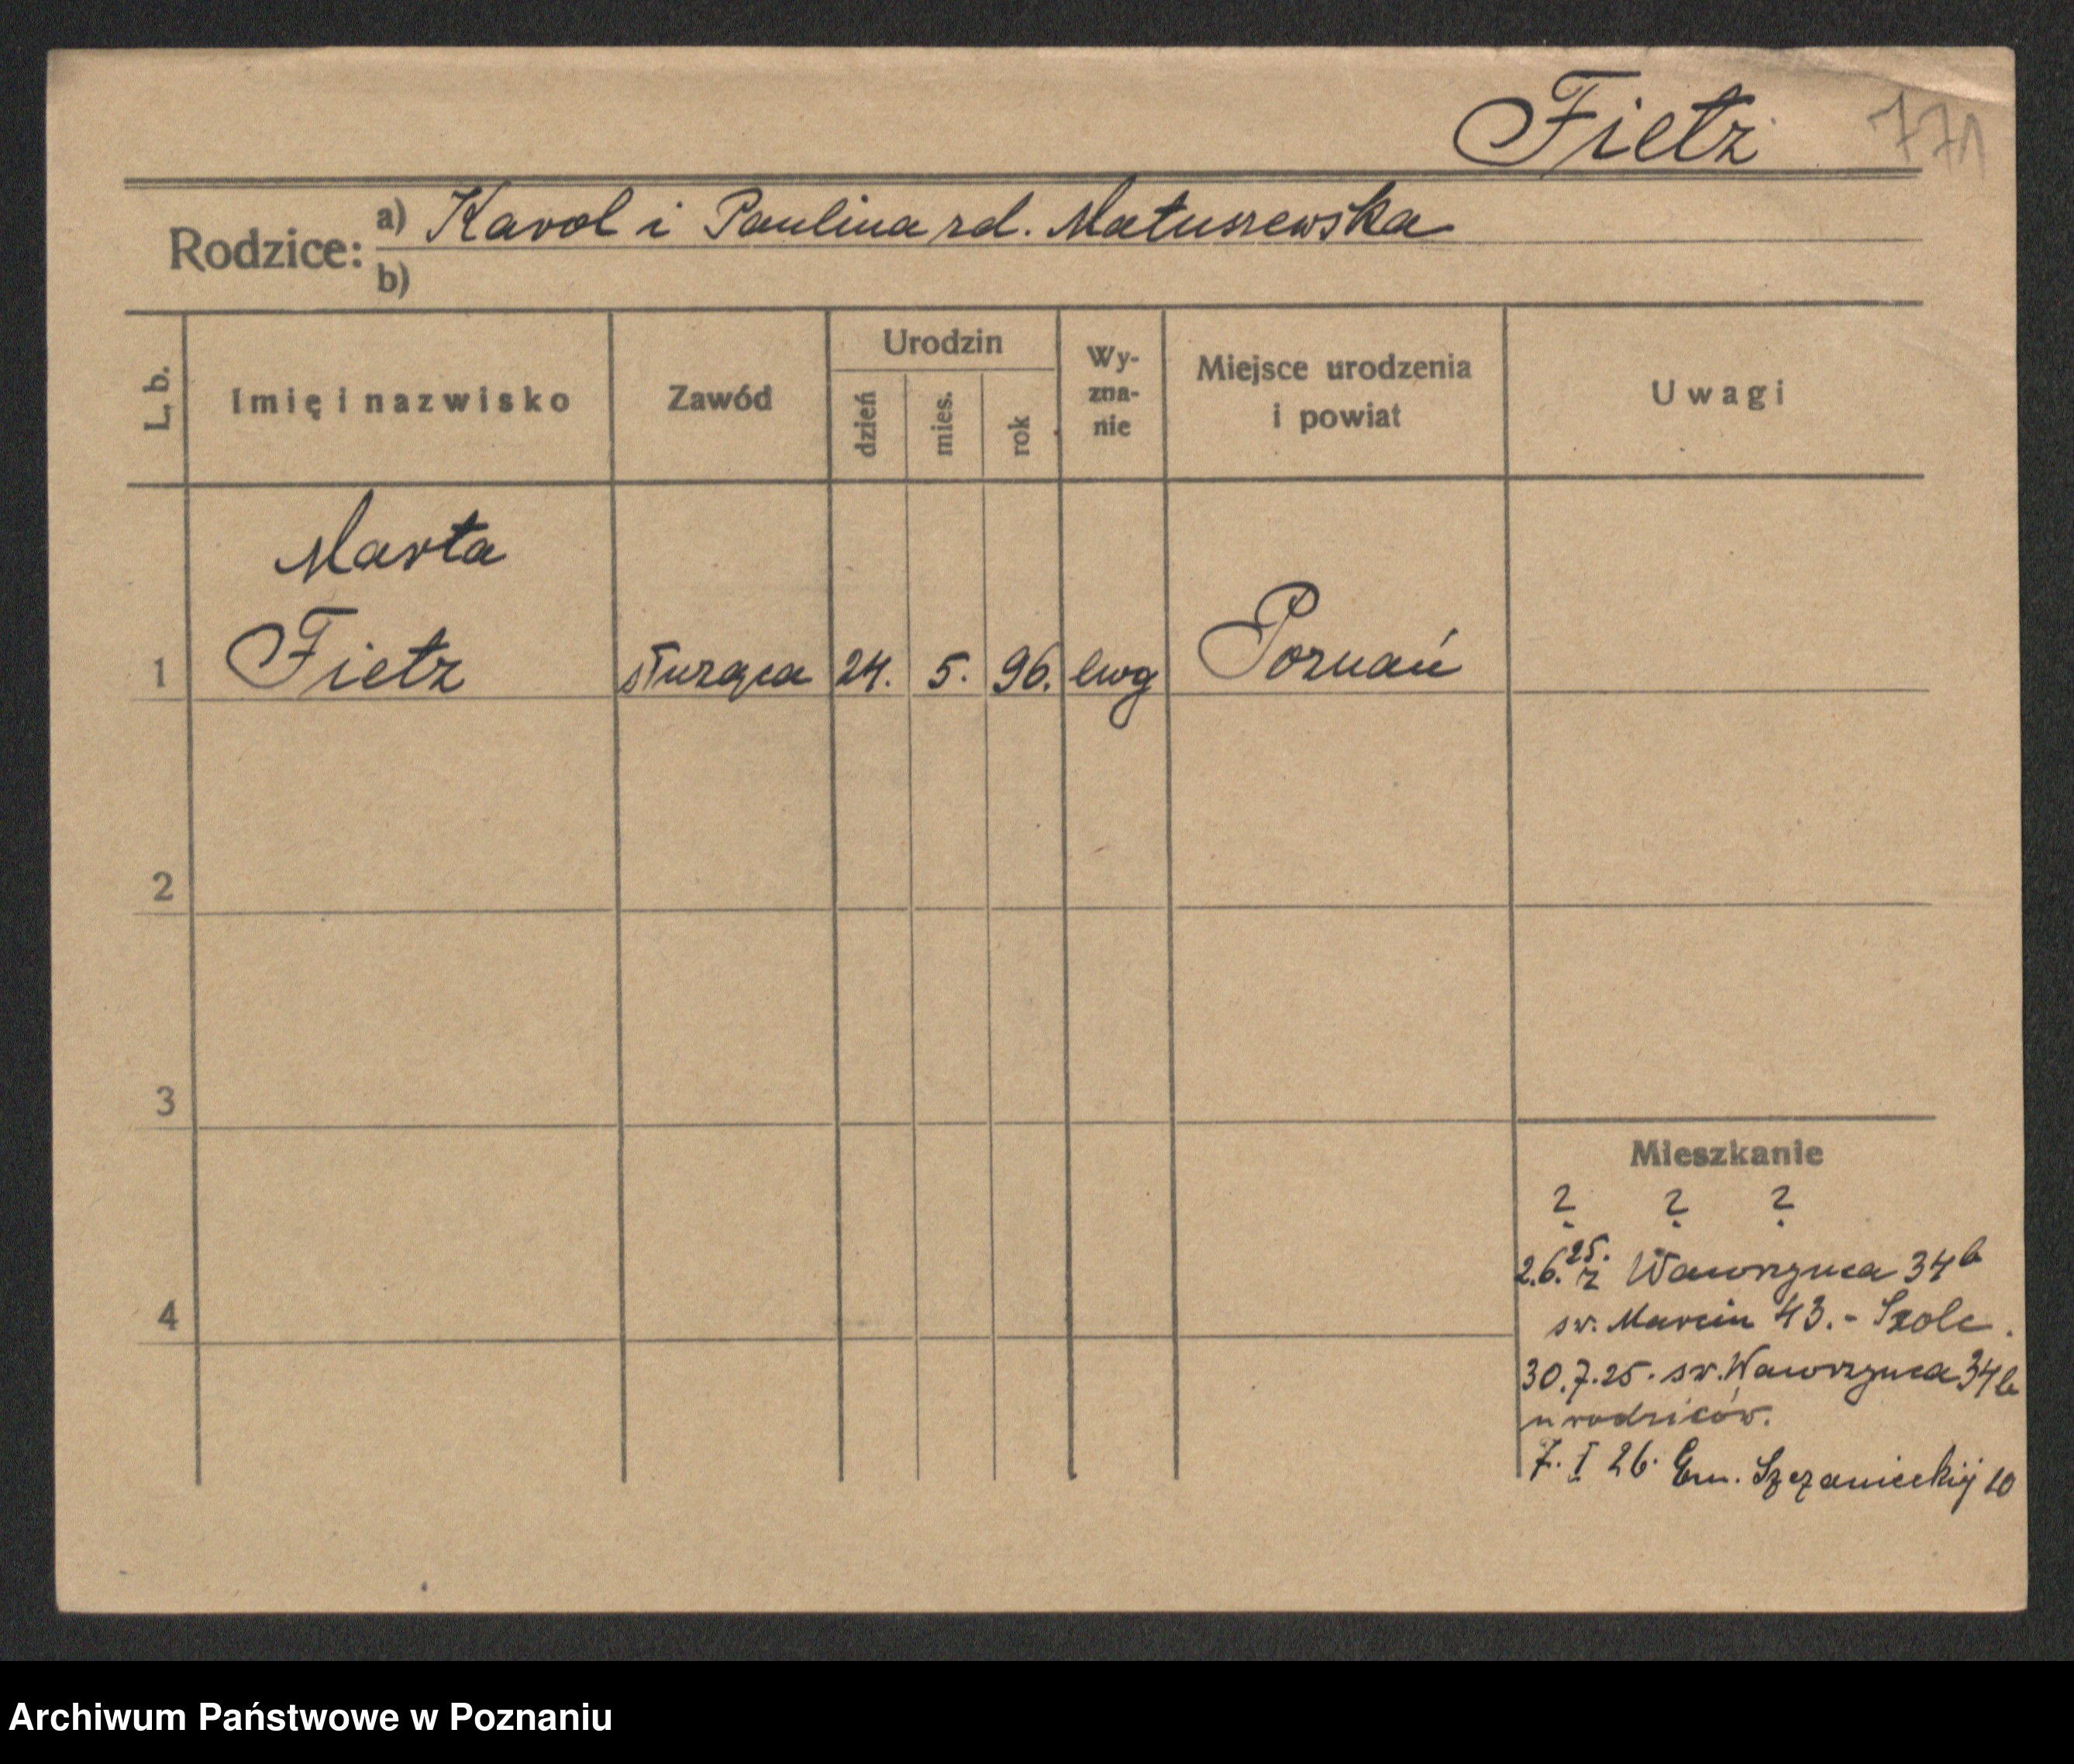 Fietz 771
Rodzice: a) Karol i Paulina rd. Matuszewska
b)
L. b. Imię i nazwisko Zawód Urodzin dzień mies. rok Wyznanie Miejsce urodzenia i powiat Uwagi
Marta
1 Fietz służąca 24. 5. 96. ewg Poznań
2
3
Mieszkanie
? ? ?
2.6.25. z Wawrzyńca 34b
4
św. Marcin 43.- Szolc.
30.7.25. św. Wawrzyńca 34b
u rodziców.
7. I 26. Em. Szczanieckij 10
Archiwum Państwowe w Poznaniu